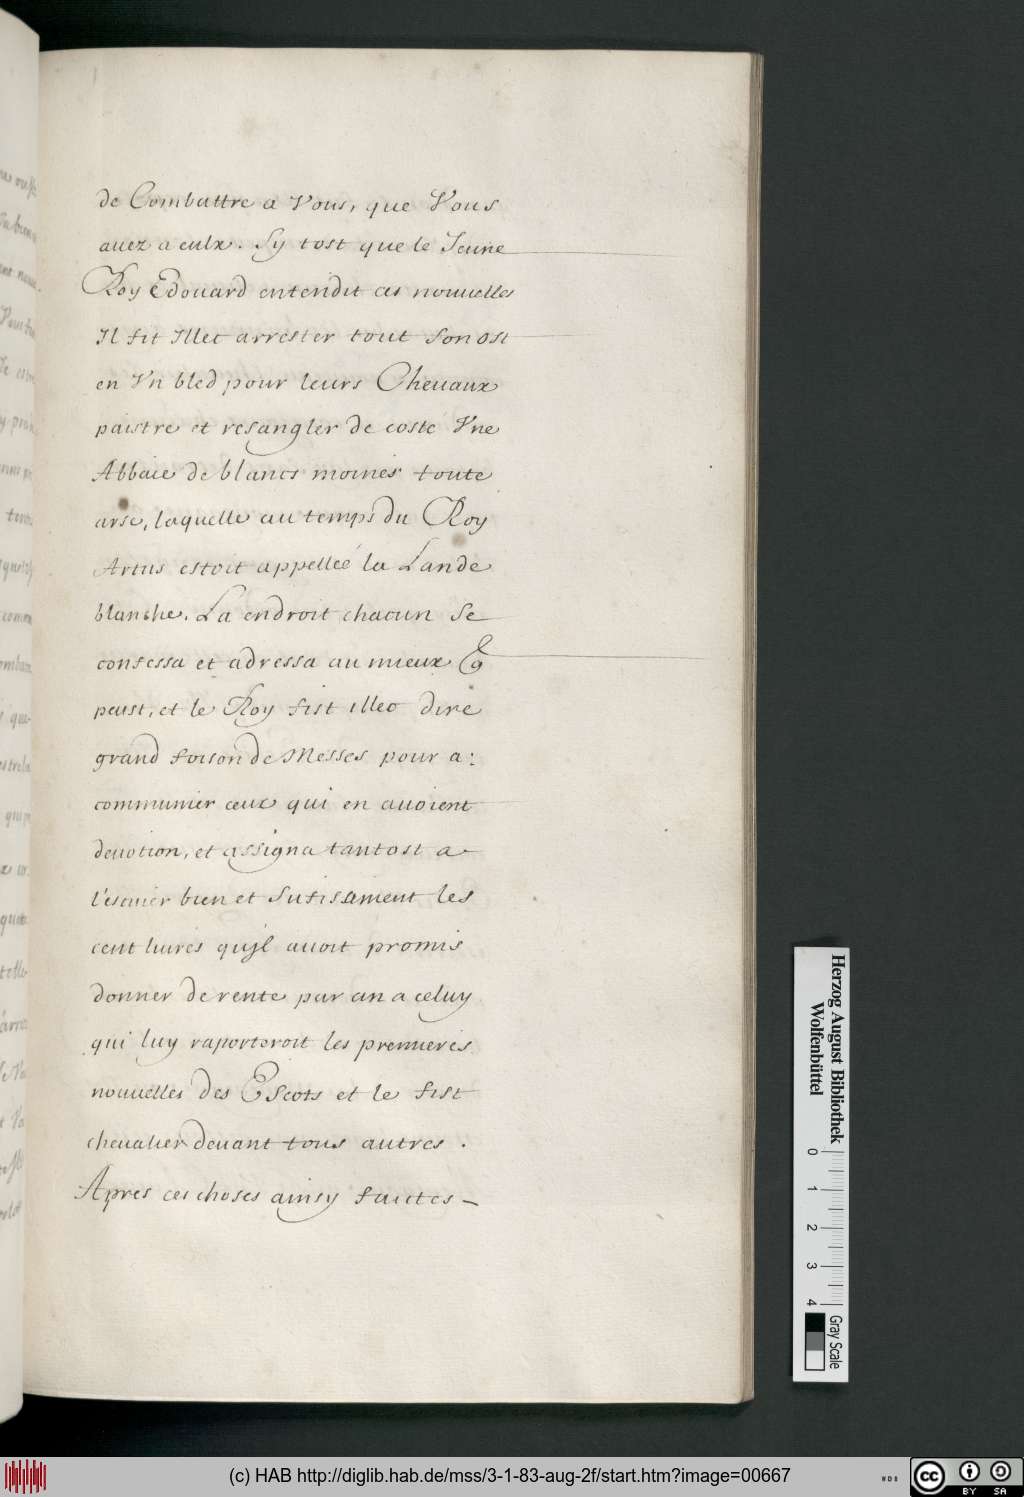 de Combattre a Vous, que Vous
auez a eulx. Sy tost que le Jeune
Roy Edouard entendit ces nouuelles
Il fit Illec arrester tout son ost
en Vn bled pour leurs Cheuaux
paistre et resangler de costé Vne
Abbaie de blancs moines toute
arse, laquelle au temps du Roy
Artus estoit appelleé la Lande
blanche. La endroit chacun se
confessa et adressa au mieux
peust, et le Roy fist illec dire
grand foison de Messes pour a:
communier ceux qui en auoient
deuotion, et assigna tantost a
l'escuier bien et sufisament les
cent liures qu'jl auoit promis
donner de rente par an a celuy
qui luy raporteroit les premieres
nouuelles des Escots et le fist
cheualier deuant tous autres.
Apres ces choses ainsy faictes –
Herzog August Bibliothek
Wolfenbüttel
0 1 2 3 4
Gray Scale
(c) HAB http://diglib.hab.de/mss/3-1-83-aug-2f/start.htm?image=00667
cc BY SA